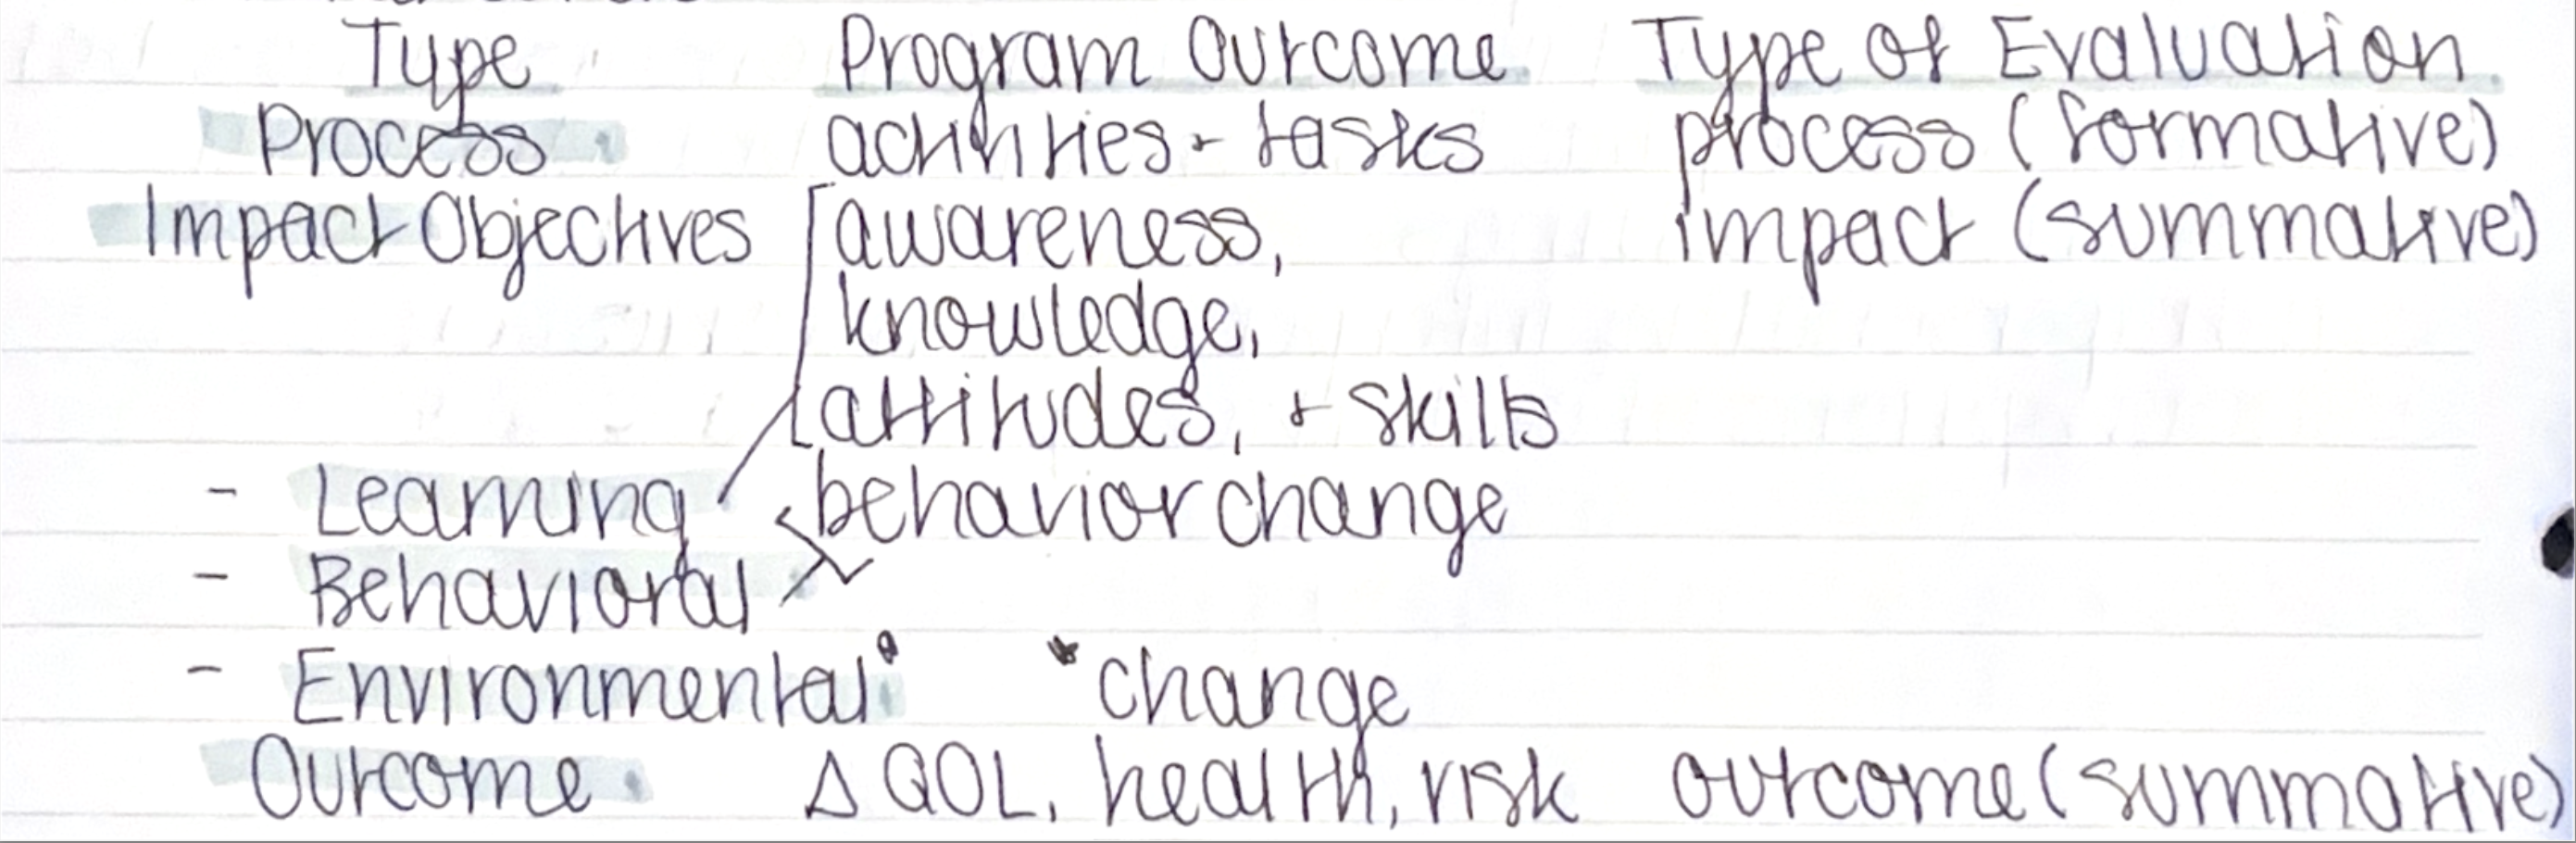 Type Program Outcome Type of Evaluation
Process activities + tasks process (formative)
Impact Objectives awareness, impact (summative)
knowledge,
attitudes, + skills
- Learning behavior change
- Behavioral
- Environmental " change
Outcome Δ QOL, health, risk outcome (summative)